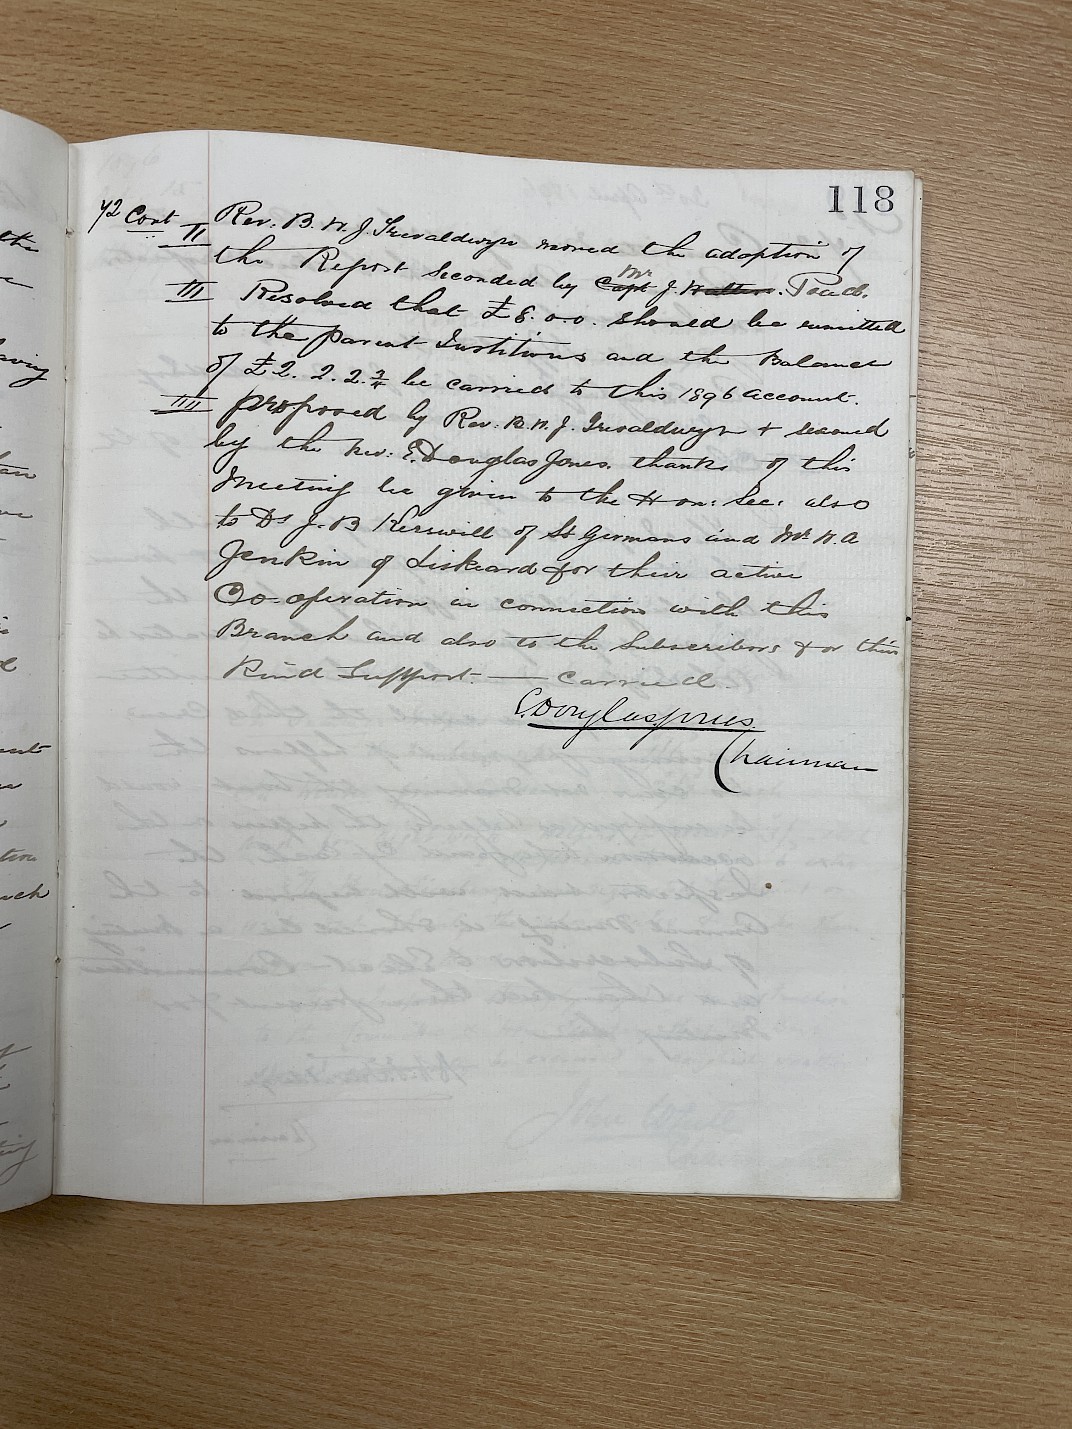 118
72 Cont II Rev. B. W. J. Trevaldwyn moved the adoption of
the Report seconded by Capt Mr J. Walters. Pead.
III Resolved that £6.0.0. should be remitted
to the parent Institions and the Balance
of £2. 2. 2 3/4 be carried to this 1896 account.
IIII proposed by Rev. B. W. J. Trevaldwyn + seconed
by the Rev: E. Douglas Jones. thanks of this
Meeting be given to the Hon: Sec: also
to Dr J. B Kerswill of St Germans and Mr W. A
Jenkin of Liskeard for their active
Co-operation in connection with this
Branch and also to the Subscribers for their
Kind Support. — Carried.
E. Douglas Jones
Chairman